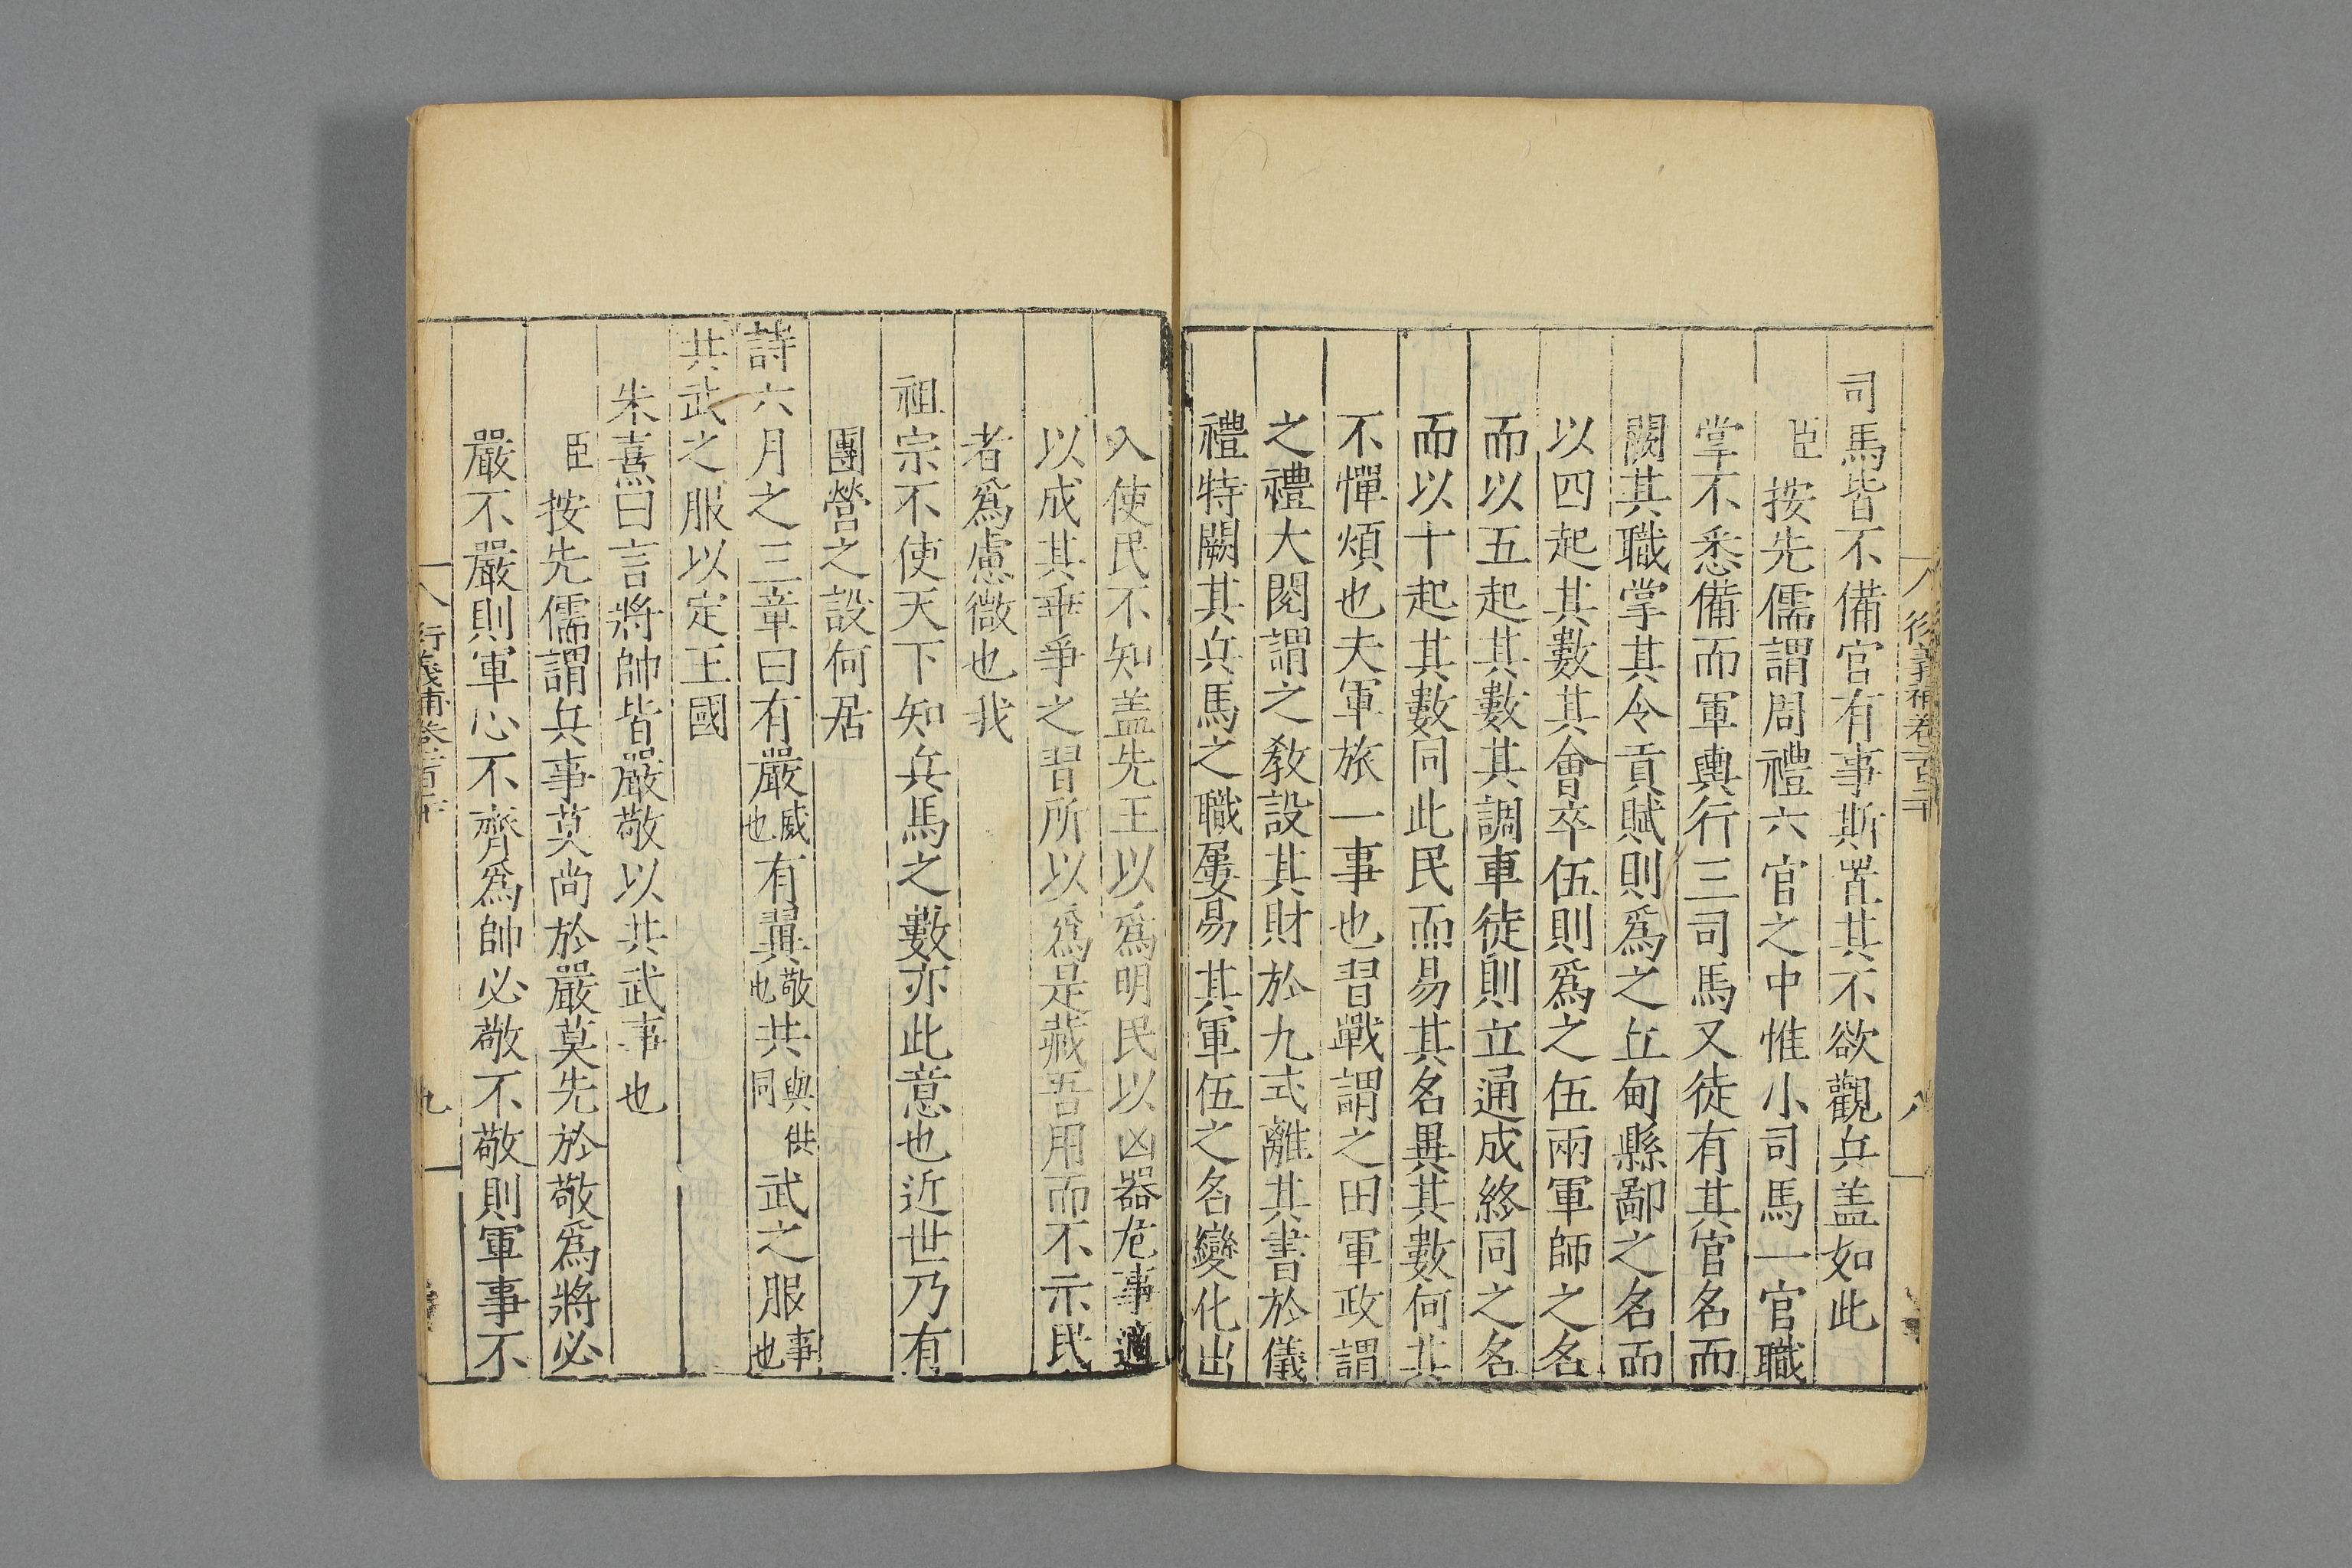 司馬皆不備官有事斯置其不欲觀兵盖如此
臣按先儒謂周禮六官之中惟小司馬一官職
掌不悉備而軍輿行三司馬又徒有其官名而
闕其職掌其令貢賦則爲之丘甸縣鄙之名而
以四起其數其會卒伍則爲之伍兩軍師之名
而以五起其數其調車徒則立通成終同之名
而以十起其數同此民而易其名異其數何其
不憚煩也夫軍旅一事也習戰謂之田軍政謂
之禮大閱謂之教設其財於九式離其書於儀
禮特闕其兵馬之職屢易其軍伍之名變化出
入使民不知盖先王以爲明民以凶器危事適
以成其乖爭之習所以爲是藏吾用而不示民
者爲慮微也我
祖宗不使天下知兵馬之數亦此意也近世乃有
團營之設何居
詩六月之三章曰有嚴威也有翼敬也共與供同武之服事也
共武之服以定王國
朱熹曰言將帥皆嚴敬以共武事也
臣按先儒謂兵事莫尚於嚴莫先於敬爲將必
嚴不嚴則軍心不齊爲帥必敬不敬則軍事不